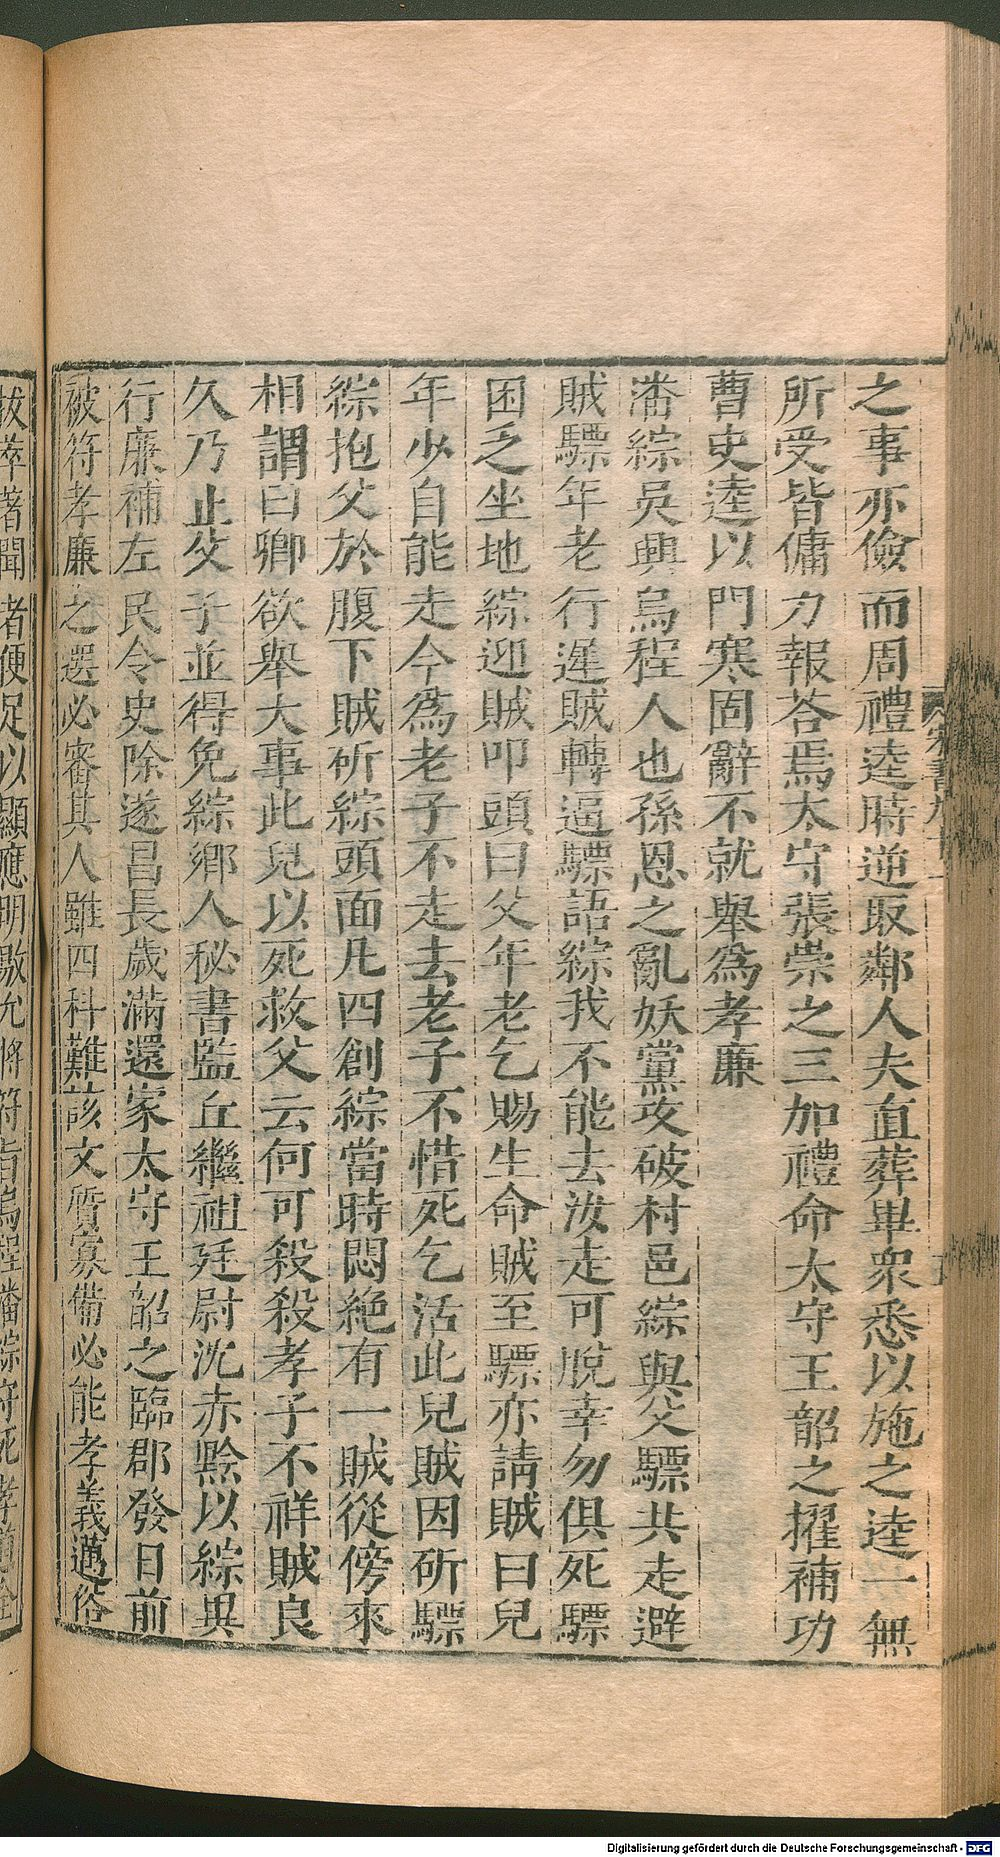 之事亦儉而周禮逵時逆取鄰人夫直葬畢衆悉以施之逵一無
所受皆傭力報荅焉太守張崇之三加禮命太守王韶之擢補功
曹史逵以門寒固辭不就舉爲孝廉
潘綜吳興烏程人也孫恩之亂妖黨攻破村邑綜與父驃共走避
賊驃年老行遲賊轉逼驃語綜我不能去汝走可脫幸勿俱死驃
困乏坐地綜迎賊叩頭曰父年老乞賜生命賊至驃亦請賊曰兒
年少自能走今爲老子不走去老子不惜死乞活此兒賊因斫驃
綜抱父於腹下賊斫綜頭面凡四創綜當時悶絶有一賊從傍來
相謂曰卿欲舉大事此兒以死救父云何可殺殺孝子不祥賊良
久乃止父子並得免綜鄉人秘書監丘繼祖廷尉沈赤黔以綜異
行廉補左民令史除遂昌長歲滿還家太守王韶之臨郡發日前
被符孝廉之選必審其人雖四科難該文質寡備必能孝義邁俗
拔萃著聞者便足以顯應明敭允將符旨烏程潘綜守死孝道全
Digitalisierung gefördert durch die Deutsche Forschungsgemeinschaft - DFG